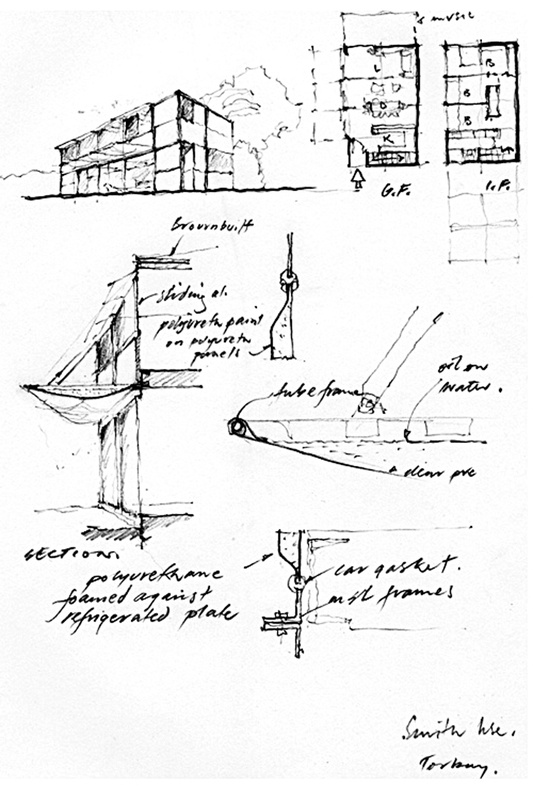 music
L
D
K
B
B
B
G.F.
1.F.
Brownbuilt
sliding al.
polyureth paint
on polyureth
panels
tube frame
oil on
water.
clear pvc
SECTION.
polyurethane
foamed against
refrigerated plate
car gasket.
m.sl frames
Smith hse.
Torbay.